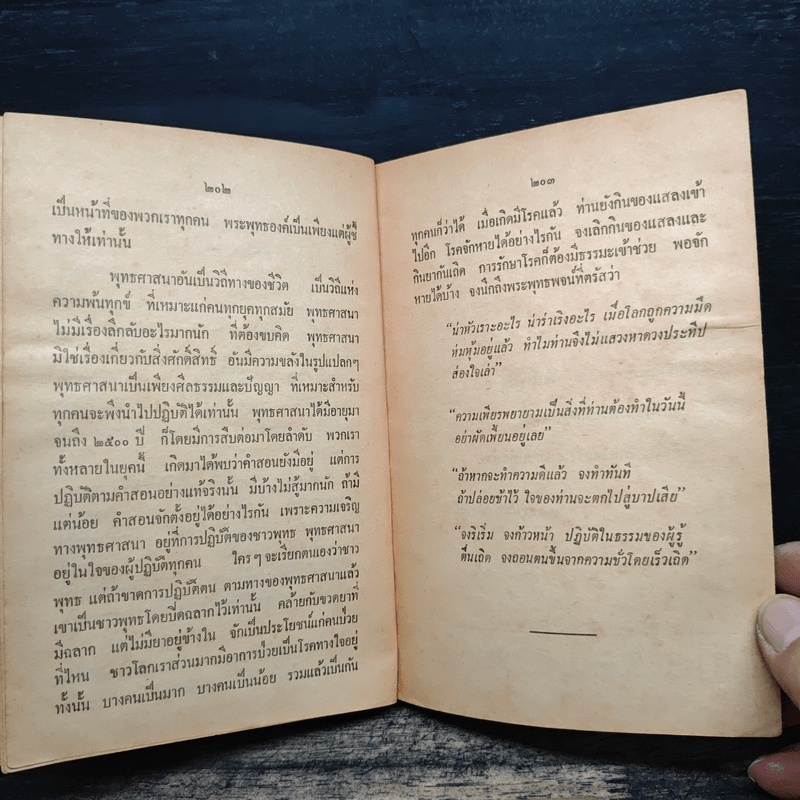 ๒๐๒
เป็นหน้าที่ของพวกเราทุกคน พระพุทธองค์เป็นเพียงแต่ผู้ชี้
ทางให้เท่านั้น
พุทธศาสนาอันเป็นวิถีทางของชีวิต เป็นวิถีแห่ง
ความพ้นทุกข์ ที่เหมาะแก่คนทุกยุคทุกสมัย พุทธศาสนา
ไม่มีเรื่องลึกลับอะไรมากนัก ที่ต้องขบคิด พุทธศาสนา
มิใช่เรื่องเกี่ยวกับสิ่งศักดิ์สิทธิ์ อันมีความขลังในรูปแปลกๆ
พุทธศาสนาเป็นเพียงศีลธรรมและปัญญา ที่เหมาะสำหรับ
ทุกคนจะพึงนำไปปฏิบัติได้เท่านั้น พุทธศาสนาได้มีอายุมา
จนถึง ๒๕๐๐ ปี ก็โดยมีการสืบต่อมาโดยลำดับ พวกเรา
ทั้งหลายในยุคนี้ เกิดมาได้พบว่าคำสอนยังมีอยู่ แต่การ
ปฏิบัติตามคำสอนอย่างแท้จริงนั้น มีบ้างไม่สู้มากนัก ถ้ามี
แต่น้อย คำสอนจักตั้งอยู่ได้อย่างไรกัน เพราะความเจริญ
ทางพุทธศาสนา อยู่ที่การปฏิบัติของชาวพุทธ พุทธศาสนา
อยู่ในใจของผู้ปฏิบัติทุกคน ใครๆ จะเรียกตนเองว่าชาว
พุทธ แต่ถ้าขาดการปฏิบัติตน ตามทางของพุทธศาสนาแล้ว
เขาเป็นชาวพุทธโดยปิดฉลากไว้เท่านั้น คล้ายกับขวดยาที่
มีฉลาก แต่ไม่มียาอยู่ข้างใน จักเป็นประโยชน์แก่คนป่วย
ที่ไหน ชาวโลกเราส่วนมากมีอาการป่วยเป็นโรคทางใจอยู่
ทั้งนั้น บางคนเป็นมาก บางคนเป็นน้อย รวมแล้วเป็นกัน
๒๐๓
ทุกคนก็ว่าได้ เมื่อเกิดมีโรคแล้ว ท่านยังกินของแสลงเข้า
ไปอีก โรคจักหายได้อย่างไรกัน จงเลิกกินของแสลงและ
กินยากันเถิด การรักษาโรคก็ต้องมีธรรมะเข้าช่วย พอจัก
หายได้บ้าง จงนึกถึงพระพุทธพจน์ที่ตรัสว่า
“น่าหัวเราะอะไร น่าร่าเริงอะไร เมื่อโลกถูกความมืด
ห่มหุ้มอยู่แล้ว ทำไมท่านจึงไม่แสวงหาดวงประทีป
ส่องใจเล่า”
“ความเพียรพยายามเป็นสิ่งที่ท่านต้องทำในวันนี้
อย่าผัดเพี้ยนอยู่เลย”
“ถ้าหากจะทำความดีแล้ว จงทำทันที
ถ้าปล่อยช้าไว้ ใจของท่านจะตกไปสู่บาปเสีย”
“จงริเริ่ม จงก้าวหน้า ปฏิบัติในธรรมของผู้รู้
ตื่นเถิด จงถอนตนขึ้นจากความชั่วโดยเร็วเถิด”